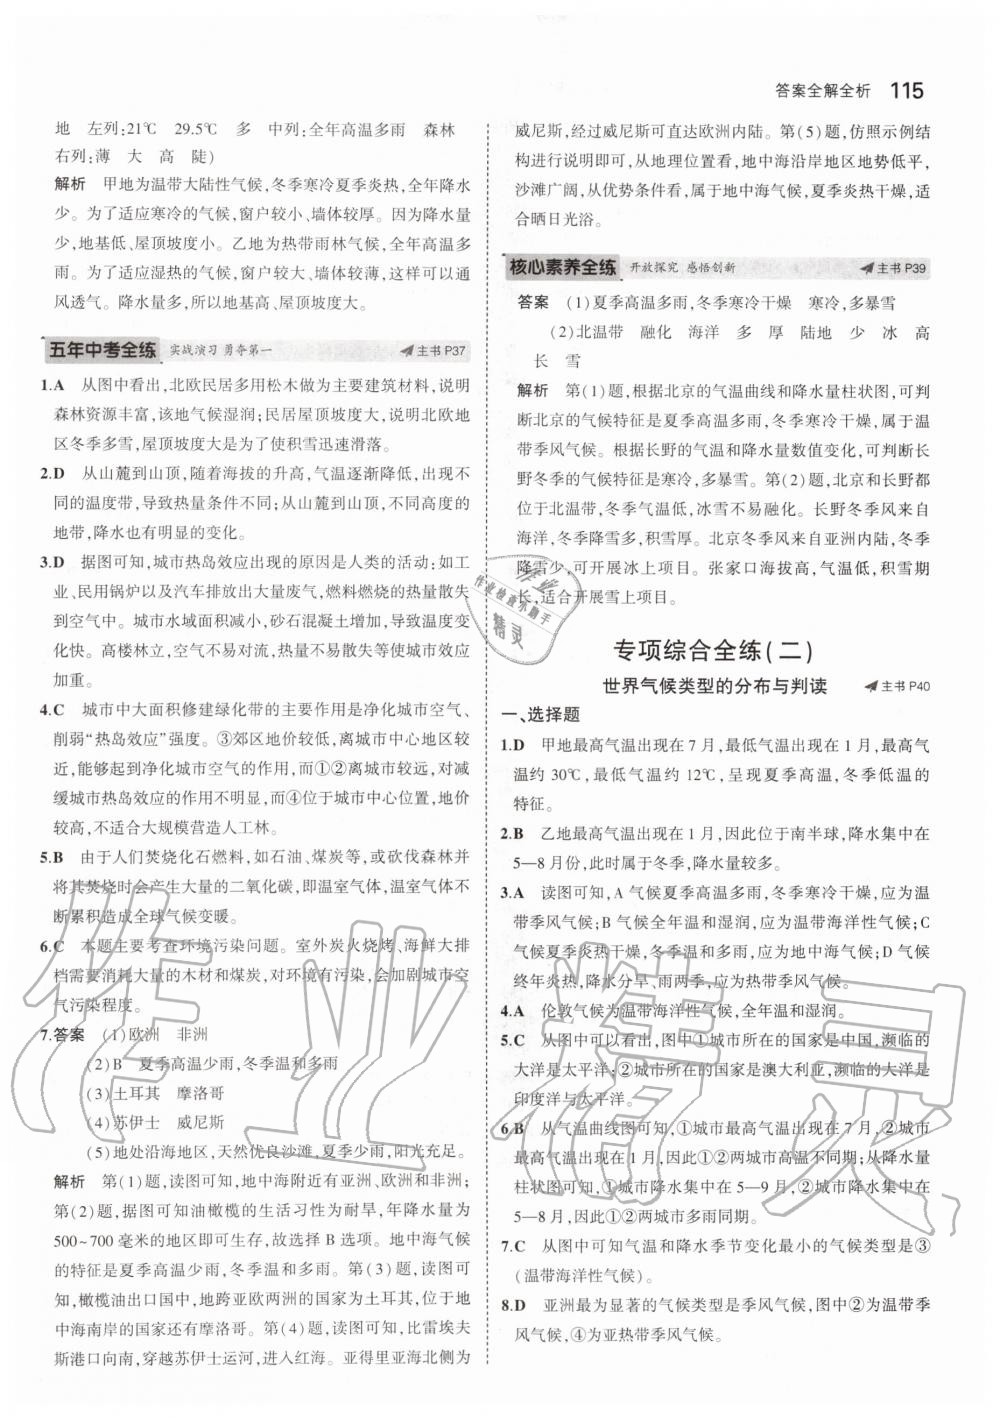 答案全解全析 115
地 左列:21℃ 29.5℃ 多 中列:全年高温多雨 森林
右列:薄 大 高 陡)
解析 甲地为温带大陆性气候,冬季寒冷夏季炎热,全年降水
少。为了适应寒冷的气候,窗户较小、墙体较厚。因为降水量
少,地基低、屋顶坡度小。乙地为热带雨林气候,全年高温多
雨。为了适应湿热的气候,窗户较大、墙体较薄,这样可以通
风透气。降水量多,所以地基高、屋顶坡度大。
五年中考全练 实战演习 勇夺第一 主书P37
1.A 从图中看出,北欧民居多用松木做为主要建筑材料,说明
森林资源丰富,该地气候湿润;民居屋顶坡度大,说明北欧地
区冬季多雪,屋顶坡度大是为了使积雪迅速滑落。
2.D 从山麓到山顶,随着海拔的升高,气温逐渐降低,出现不
同的温度带,导致热量条件不同;从山麓到山顶,不同高度的
地带,降水也有明显的变化。
3.D 据图可知,城市热岛效应出现的原因是人类的活动:如工
业、民用锅炉以及汽车排放出大量废气,燃料燃烧的热量散失
到空气中。城市水域面积减小,砂石混凝土增加,导致温度变
化快。高楼林立,空气不易对流、热量不易散失等使城市效应
加重。
4.C 城市中大面积修建绿化带的主要作用是净化城市空气、
削弱“热岛效应”强度。③郊区地价较低,离城市中心地区较
近,能够起到净化城市空气的作用,而①②离城市较远,对减
缓城市热岛效应的作用不明显,而④位于城市中心位置,地价
较高,不适合大规模营造人工林。
5.B 由于人们焚烧化石燃料,如石油、煤炭等,或砍伐森林并
将其焚烧时会产生大量的二氧化碳,即温室气体,温室气体不
断累积造成全球气候变暖。
6.C 本题主要考查环境污染问题。室外炭火烧烤、海鲜大排
档需要消耗大量的木材和煤炭,对环境有污染,会加剧城市空
气污染程度。
7.答案 (1)欧洲 非洲
(2)B 夏季高温少雨,冬季温和多雨
(3)土耳其 摩洛哥
(4)苏伊士 威尼斯
(5)地处沿海地区,天然优良沙滩,夏季少雨,阳光充足。
解析 第(1)题,读图可知,地中海附近有亚洲、欧洲和非洲;
第(2)题,据图可知油橄榄的生活习性为耐旱,年降水量为
500~700毫米的地区即可生存,故选择B选项。地中海气候
的特征是夏季高温少雨,冬季温和多雨。第(3)题,读图可
知,橄榄油出口国中,地跨亚欧两洲的国家为土耳其,位于地
中海南岸的国家还有摩洛哥。第(4)题,读图可知,比雷埃夫
斯港口向南,穿越苏伊士运河,进入红海。亚得里亚海北侧为
威尼斯,经过威尼斯可直达欧洲内陆。第(5)题,仿照示例结
构进行说明即可,从地理位置看,地中海沿岸地区地势低平,
沙滩广阔,从优势条件看,属于地中海气候,夏季炎热干燥,适
合晒日光浴。
核心素养全练 开放探究 感悟创新 主书P39
答案 (1)夏季高温多雨,冬季寒冷干燥 寒冷,多暴雪
(2)北温带 融化 海洋 多 厚 陆地 少 冰 高
长 雪
解析 第(1)题,根据北京的气温曲线和降水量柱状图,可判
断北京的气候特征是夏季高温多雨,冬季寒冷干燥,属于温
带季风气候。根据长野的气温和降水量数值变化,可判断长
野冬季的气候特征是寒冷,多暴雪。第(2)题,北京和长野都
位于北温带,冬季气温低,冰雪不易融化。长野冬季风来自
海洋,冬季降雪多,积雪厚。北京冬季风来自亚洲内陆,冬季
降雪少,可开展冰上项目。张家口海拔高,气温低,积雪期
长,适合开展雪上项目。
专项综合全练(二)
世界气候类型的分布与判读 主书P40
一、选择题
1.D 甲地最高气温出现在7月,最低气温出现在1月,最高气
温约30℃,最低气温约12℃,呈现夏季高温,冬季低温的
特征。
2.B 乙地最高气温出现在1月,因此位于南半球,降水集中在
5—8月份,此时属于冬季,降水量较多。
3.A 读图可知,A气候夏季高温多雨,冬季寒冷干燥,应为温
带季风气候;B气候全年温和湿润,应为温带海洋性气候;C
气候夏季炎热干燥,冬季温和多雨,应为地中海气候;D气候
终年炎热,降水分旱、雨两季,应为热带季风气候。
4.A 伦敦气候为温带海洋性气候,全年温和湿润。
5.C 从图中可以看出,图中①城市所在的国家是中国,濒临的
大洋是太平洋;②城市所在的国家是澳大利亚,濒临的大洋是
印度洋与太平洋。
6.B 从气温曲线图可知,①城市最高气温出现在7月,②城市
最高气温出现在1月,因此①②两城市高温不同期;从降水量
柱状图可知,①城市降水集中在5—9月,②城市降水集中在
5—8月,因此①②两城市多雨同期。
7.C 从图中可知气温和降水季节变化最小的气候类型是③
(温带海洋性气候)。
8.D 亚洲最为显著的气候类型是季风气候,图中②为温带季
风气候,④为亚热带季风气候。
作业精灵